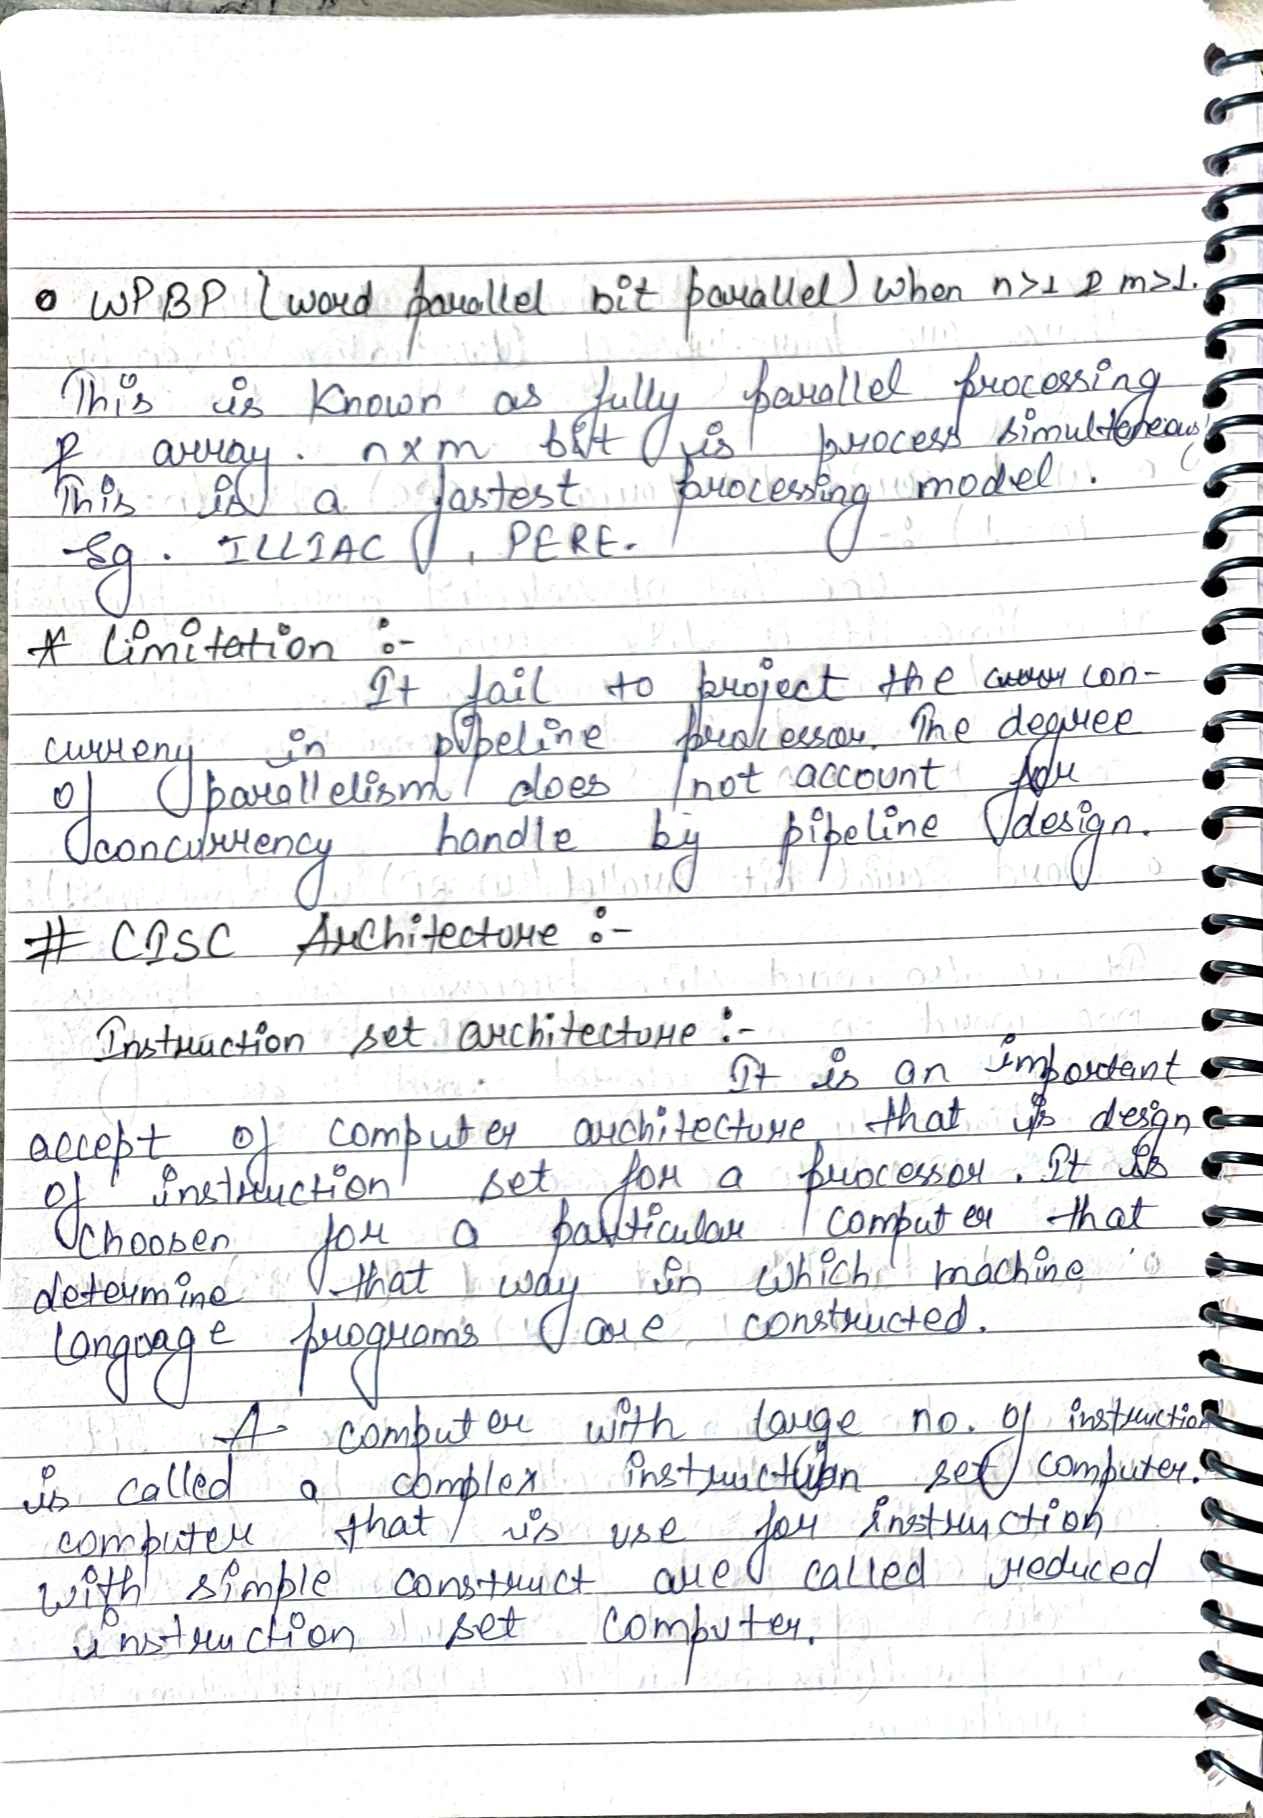 o WPBP (word parallel bit parallel) when n>1 & m>1.
This is Known as fully parallel processing
& array. n×m bit is process simulteneous
This is a fastest processing model.
Eg. ILLIAC, PERE.
* Limitation :-
It fail to project the con-
curreny in pipeline processor. The degree
of parallelism does not account for
concurrency handle by pipeline design.
# CISC Architecture :-
Instruction set architecture :-
It is an important
accept of computer architecture that is design
of instruction set for a processor. It is
choosen for a particular computer that
determine that way in which machine
language programs are constructed.
A computer with large no. of instruction
is called a complex instruction set computer.
computer that is use for instruction
with simple construct are called reduced
instruction set computer.